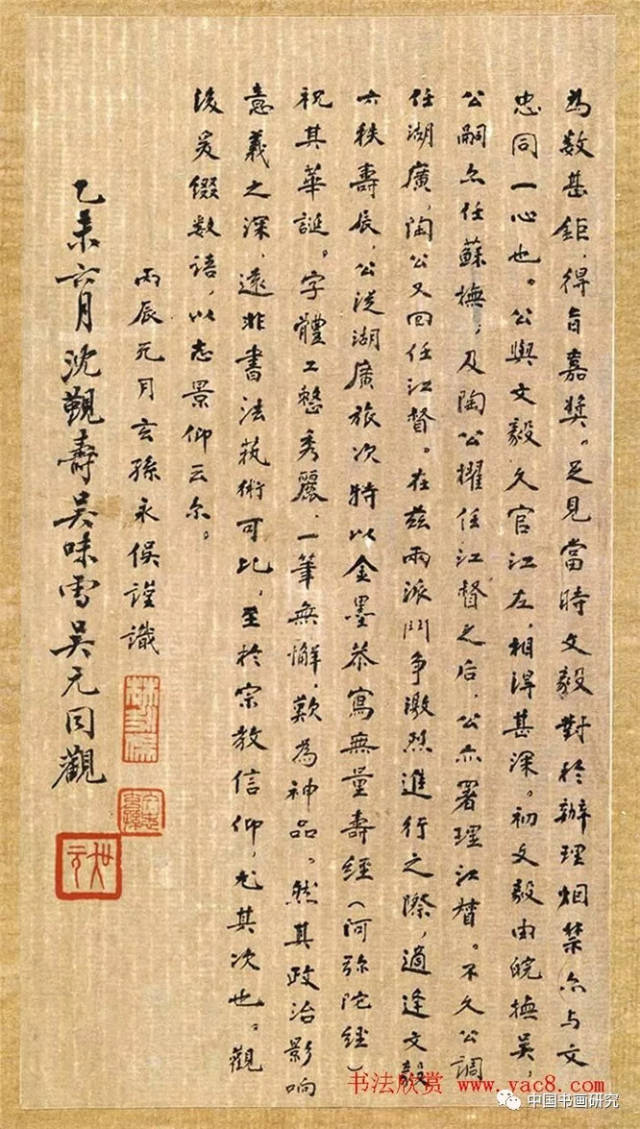 为数甚鉅，得旨嘉奖。足見當時文毅對於辦理烟禁亦与文
忠同一心也。公與文毅久官江左，相得甚深。初文毅由皖撫吴，
公嗣亦任蘇撫，及陶公擢任江督之后，公亦署理江督。不久公調
任湖廣，陶公又回任江督。在兹兩派鬥争激烈進行之際，適逢文毅
六秩壽辰，公従湖廣旅次特以金墨恭寫無量壽經（阿弥陀經）
祝其華誕。字體工整秀麗，一筆無懈，歎為神品。然其政治影响
意義之深，遠非書法藝術可比，至於宗教信仰，尤其次也。觀
後爰缀数语，以志景仰云尔。
丙辰元月玄孫永俁謹識
乙未六月沈觀壽吴味雪吴元同觀
书法欣赏 www.yac8.com
中国书画研究